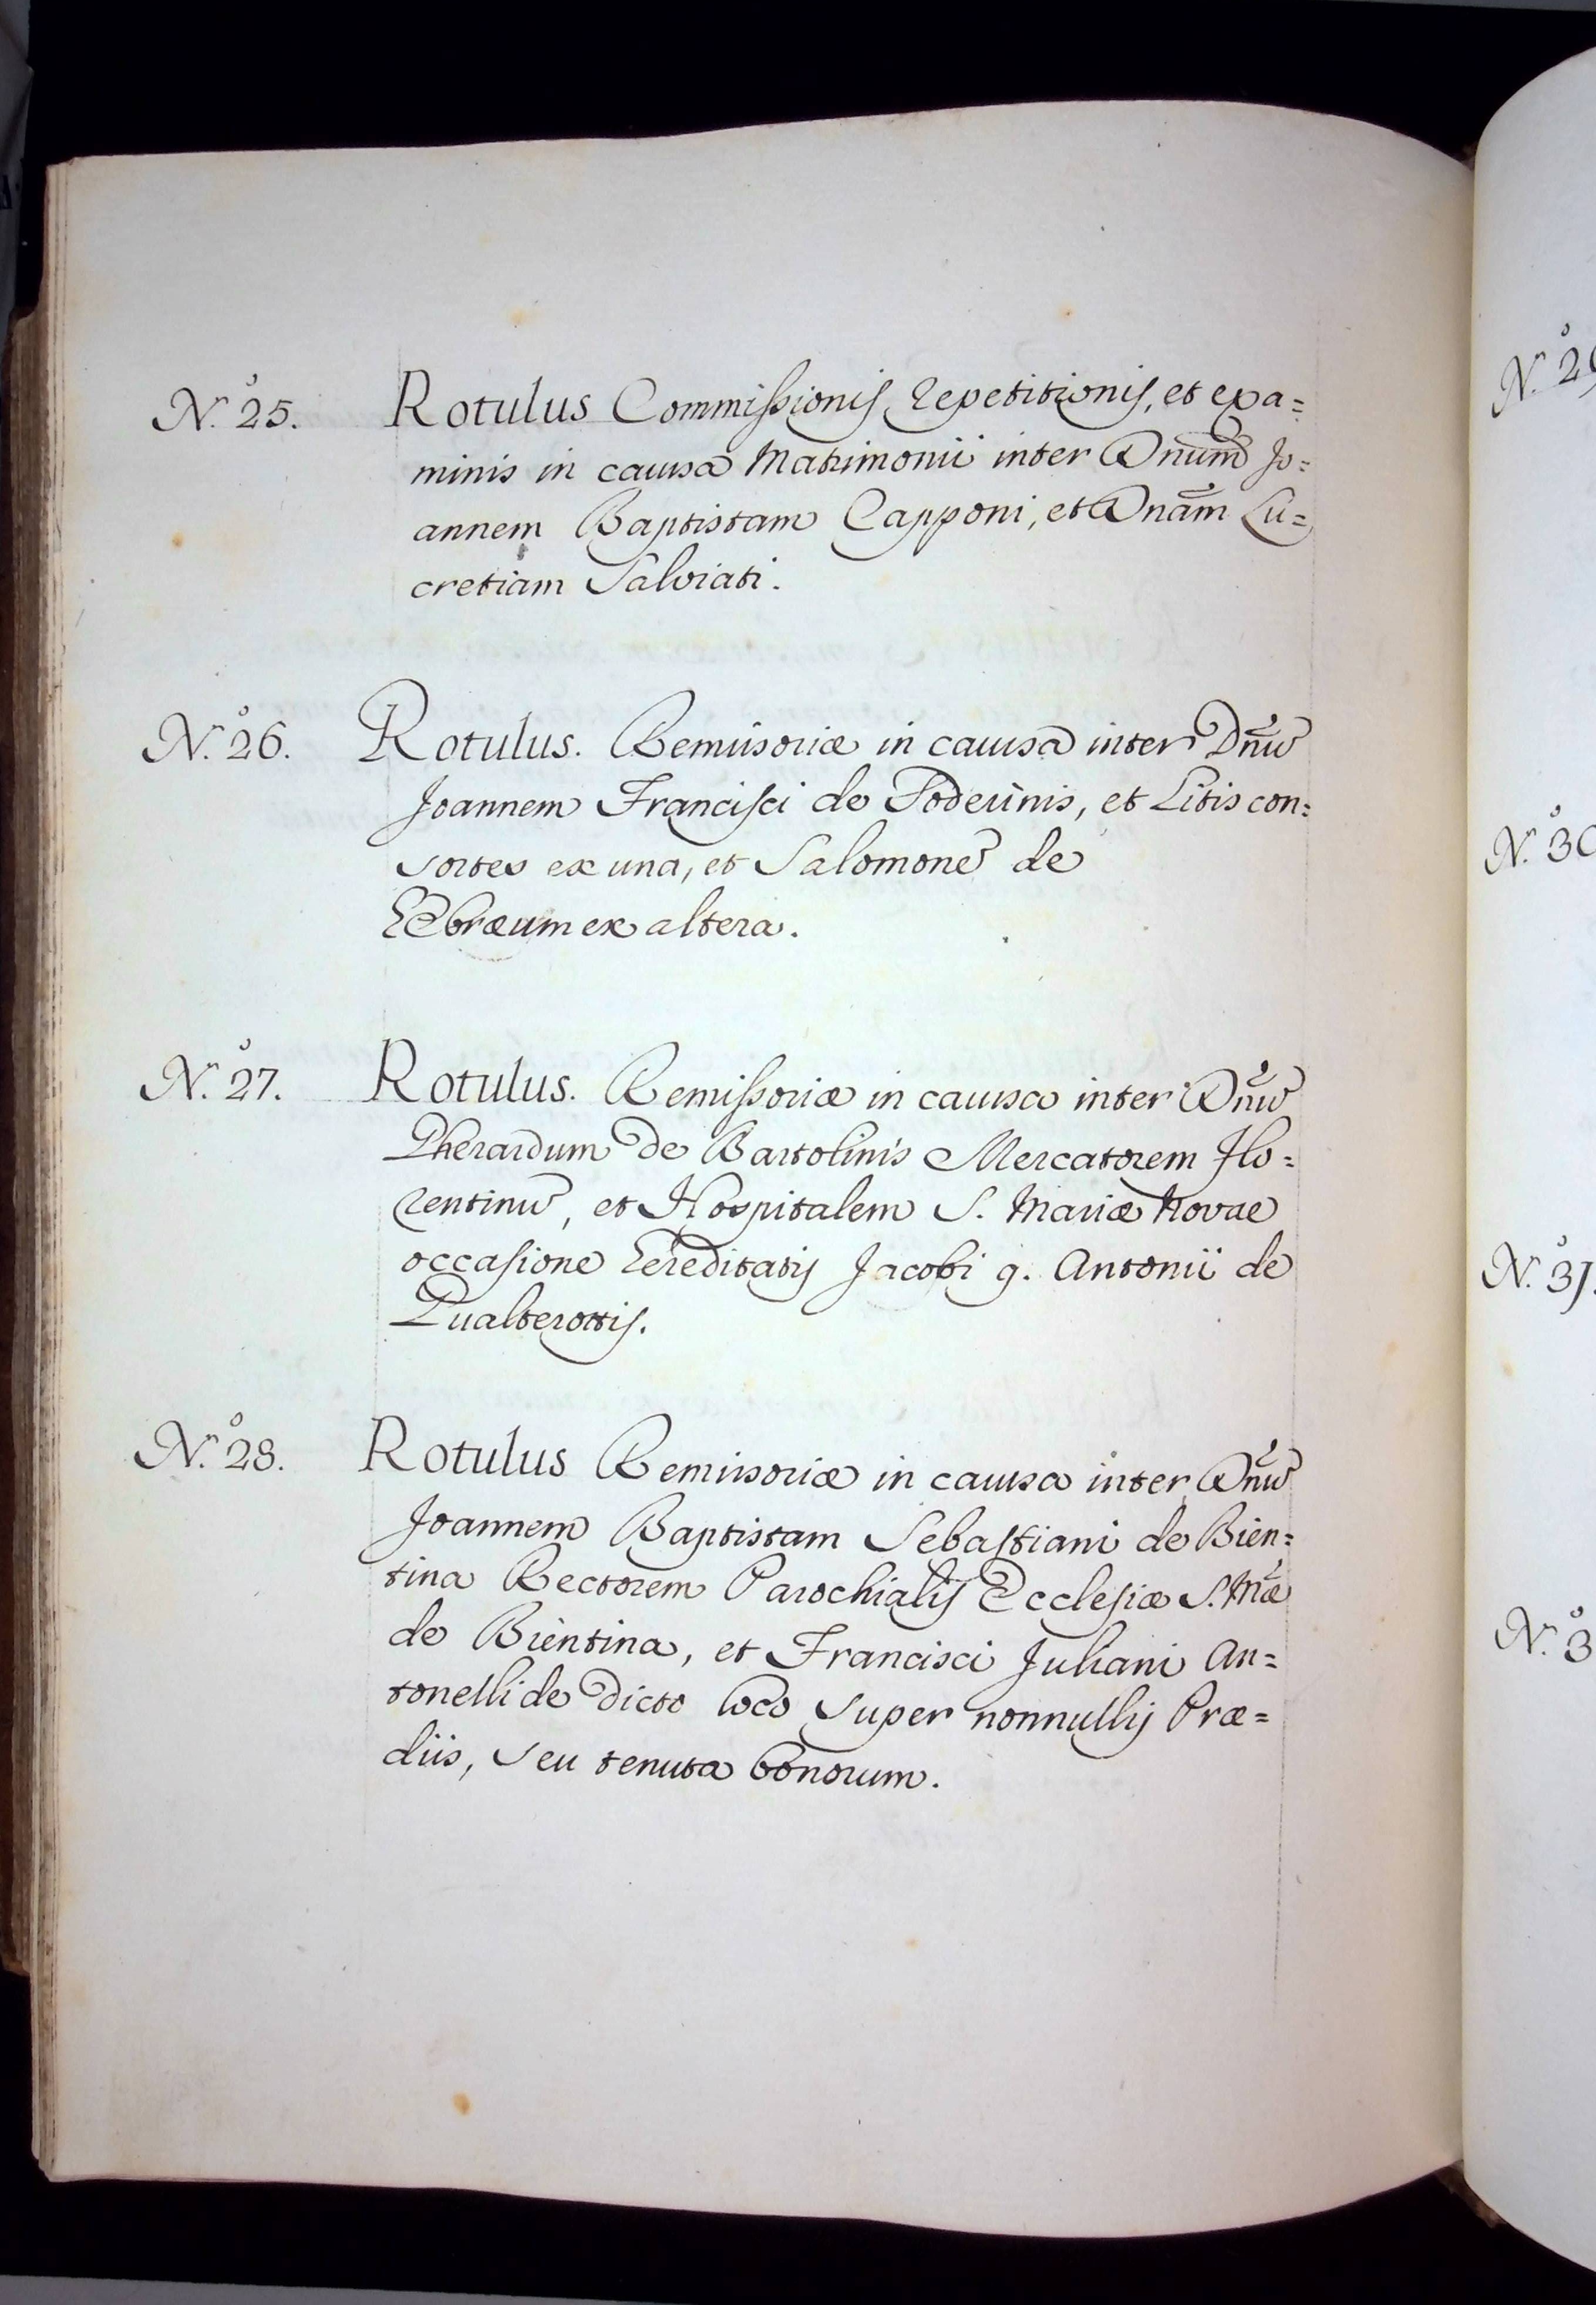 N.º 25. Rotulus Commissionis repetitionis, et exa=
minis in causa Matrimonii inter Dnum̃ Jo=
annem Baptistam Capponi, et Dnãm Lu=
cretiam Salviati.
N.º 26. Rotulus. Remissoriæ in causa inter Dñu
Joannem Francisci de Poderinis, et Litis con=
sortes ex una, et Salomone de
Hebræum ex altera.
N.º 27. Rotulus. Remissoriæ in causa inter Dñu
Gherardum de Bartolinis Mercatorem Flo=
rentinu, et Hospitalem S. Mariæ Novae
occasione hereditatis Jacobi q. Antonii de
Gualterottis.
N.º 28. Rotulus Remissoriæ in causa inter Dñu
Joannem Baptistam Sebastiani de Bien=
tina Rectorem Parochialis Ecclesiæ S. Mæ
de Bientina, et Francisci Juliani An=
tonelli de dicto loco super nonnullis Præ=
diis, seu tenuta bonorum.
N.º 29
N.º 30
N.º 31.
N.º 3